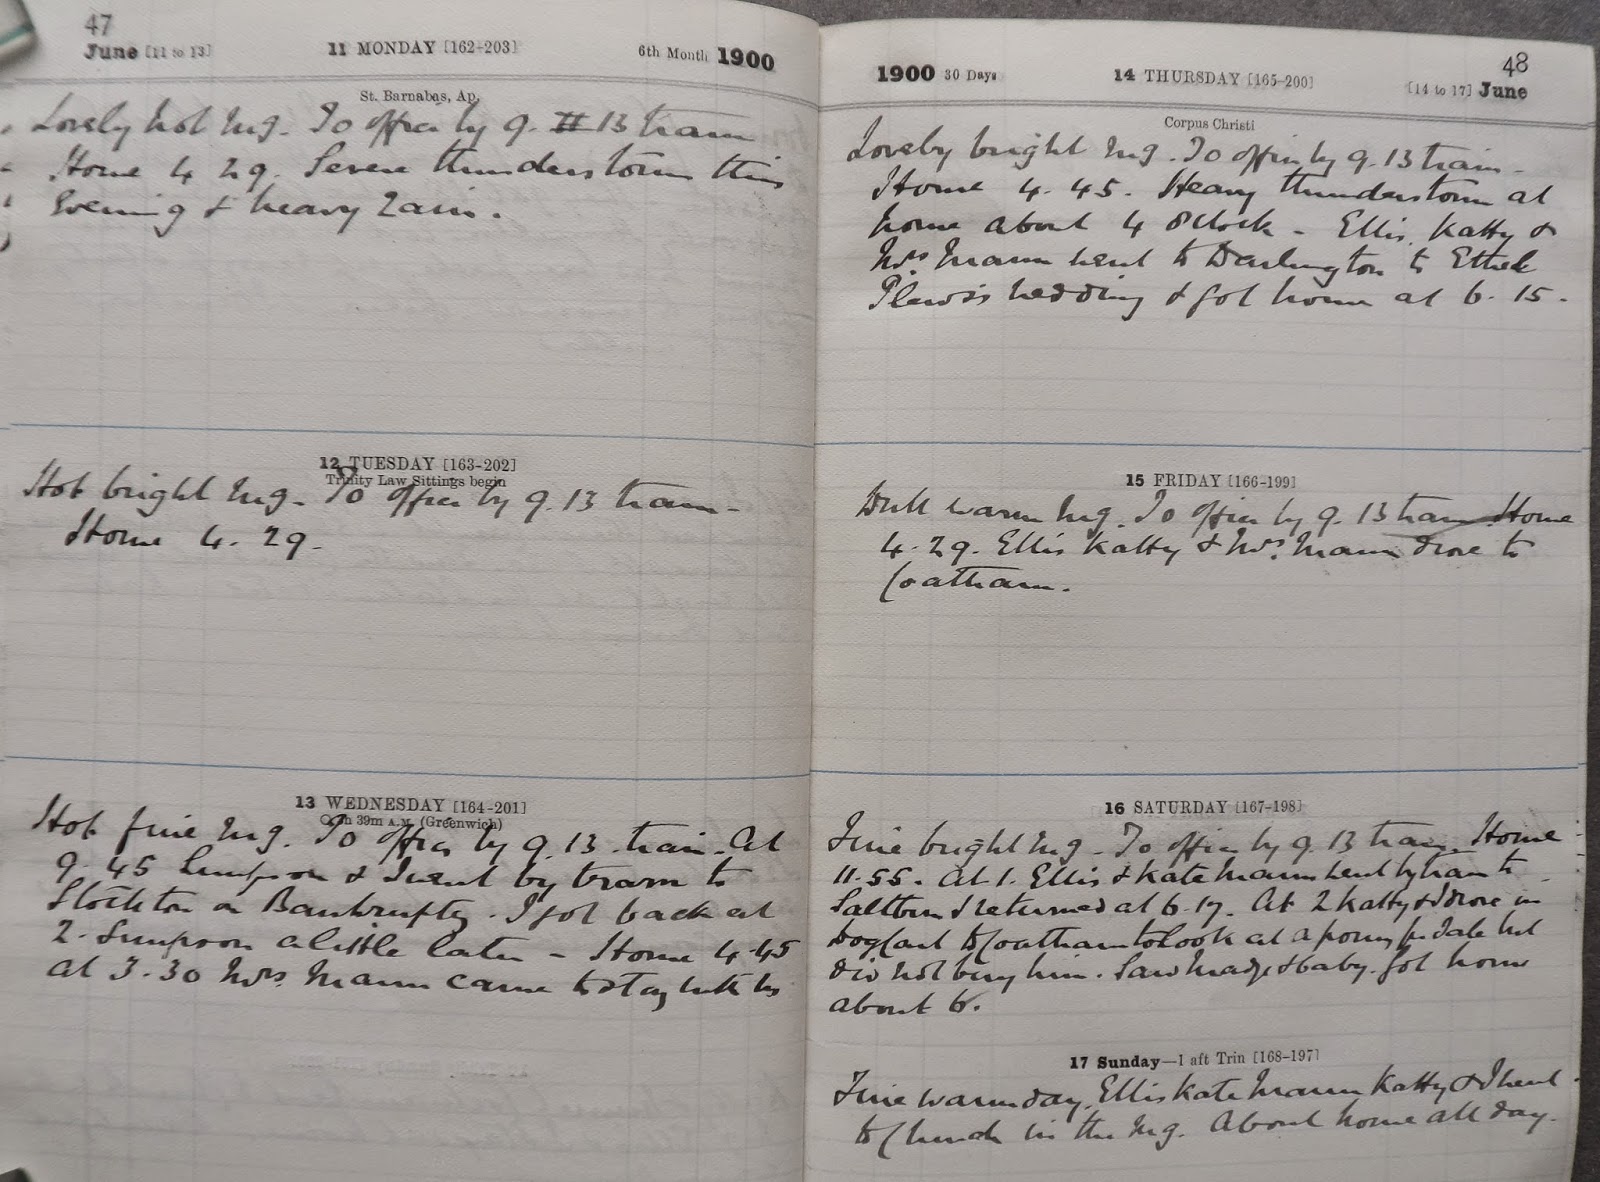 47
June [11 to 13] 11 MONDAY [162-203] 6th Month 1900
St. Barnabas, Ap.
Lovely hot mg. To office by 9. 11 13 train
Home 4 29. Severe thunderstorm this
Evening & heavy rain.
12 TUESDAY [163-202]
Trinity Law Sittings begin
Hot bright mg. To office by 9.13 train -
Home 4. 29.
13 WEDNESDAY [164-201]
39m A.M. (Greenwich)
Hot fine mg. To office by 9.13 train. At
9.45 Simpson & I went by tram to
Stockton on Bankruptcy. I got back at
2. Simpson a little later - Home 4.45
at 3.30 Mrs. Mann came to stay with us
48
1900 30 Days 14 THURSDAY [165-200] [14 to 17] June
Corpus Christi
Lovely bright mg. To office by 9.13 train.
Home 4.45. Heavy thunderstorm at
home about 4 o'clock - Ellis, Katty &
Mrs Mann went to Darlington to Ethel
wedding & got home at 6.15.
15 FRIDAY [166-199]
Dull warm mg. To office by 9.13 train Home
4.29. Ellis Katty & Mrs. Mann drove to
Coatham.
16 SATURDAY [167-198]
Fine bright mg - To office by 9.13 train. Home
11.55. At 1. Ellis & Kate Mann went by train to
Saltburn & returned at 6.17. At 2 Katty & I drove in
Dog Cart to Coatham to look at a pony for Dale but
did not buy him. Saw Madge & baby. Got home
about 6.
17 Sunday-1 aft Trin [168-197]
Fine warm day. Ellis Kate Mann Katty & I went
to Church in the mg. About home all day.